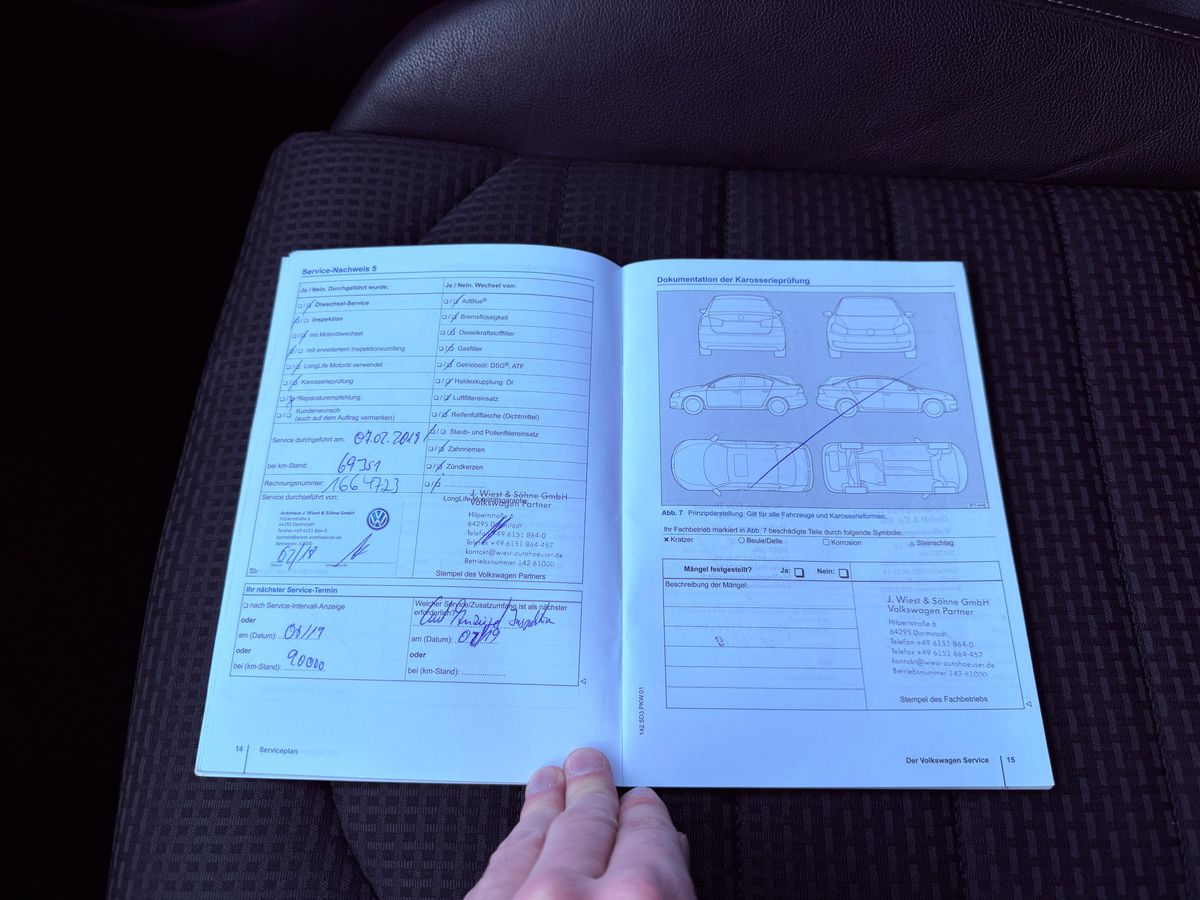 Service-Nachweis 5
Ja / Nein. Durchgeführt wurde:
Ölwechsel-Service
Inspektion
mit Motorölwechsel
mit erweitertem Inspektionsumfang
LongLife Motoröl verwendet
Karosserieprüfung
Reparaturempfehlung
Kundenwunsch
(auch auf dem Auftrag vermerken)
Service durchgeführt am: 07.02.2018
bei km-Stand: 69351
Rechnungsnummer: 1664723
Service durchgeführt von:
Autohaus J. Wiest & Söhne GmbH
Hilpertstraße 6
64295 Darmstadt
Telefon +49 6151 864-0
kontakt@wiest-autohaeuser.de
Betriebsnr. 61000
02/18
Datum
Unterschrift
Ja / Nein. Wechsel von:
AdBlue®
Bremsflüssigkeit
Dieselkraftstofffilter
Gasfilter
Getriebeöl: DSG®, ATF
Haldexkupplung: Öl
Luftfiltereinsatz
Reifenfüllflasche (Dichtmittel)
Staub- und Pollenfiltereinsatz
Zahnriemen
Zündkerzen
LongLife Mobilitätsgarantie
J. Wiest & Söhne GmbH
Volkswagen Partner
Hilpertstraße 6
64295 Darmstadt
Telefon +49 6151 864-0
Telefax +49 6151 864-457
kontakt@wiest-autohaeuser.de
Betriebsnummer 142 61000
Stempel des Volkswagen Partners
Ihr nächster Service-Termin
nach Service-Intervall-Anzeige
oder
am (Datum): 02/19
oder
bei (km-Stand): 90000
Welcher Service/Zusatzumfang ist als nächster
erforderlich?
Laut Anzeige Inspektion
am (Datum): 02/19
oder
bei (km-Stand):
14 Serviceplan
Dokumentation der Karosserieprüfung
Abb. 7 Prinzipdarstellung: Gilt für alle Fahrzeuge und Karosserieformen.
Ihr Fachbetrieb markiert in Abb. 7 beschädigte Teile durch folgende Symbole:
Kratzer Beule/Delle Korrosion Steinschlag
Mängel festgestellt? Ja: Nein:
Beschreibung der Mängel:
J. Wiest & Söhne GmbH
Volkswagen Partner
Hilpertstraße 6
64295 Darmstadt
Telefon +49 6151 864-0
Telefax +49 6151 864-457
kontakt@wiest-autohaeuser.de
Betriebsnummer 142 61000
Stempel des Fachbetriebs
142.5D3.PKW.01
Der Volkswagen Service 15